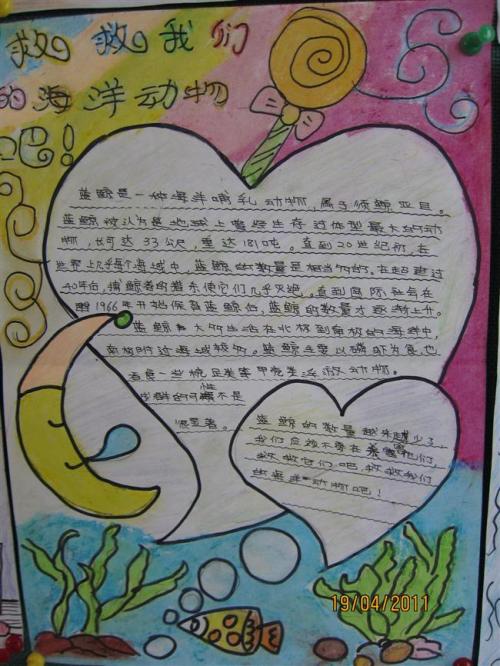 救救我们
的海洋动物
吧！
蓝鲸是一种海洋哺乳动物，属于须鲸亚目。
蓝鲸被认为是地球上曾经生存过体型最大的动
物，长可达33公尺，重达181吨。直到20世纪初，在
世界上几乎每个海域中，蓝鲸的数量是相当多的。在超过
40年后，捕鲸者的猎杀使它们几乎灭绝。直到国际社会在
1966年开始保育蓝鲸后，蓝鲸的数量才逐渐上升。
蓝鲸大的生活在北极到南极的海洋中，
南极附近海域较多。蓝鲸主要以磷虾为食，也
吞食一些桡足类等甲壳类浮游动物。
集群的习性不是
很显著。
蓝鲸的数量越来越少了，
我们应该不要在杀害它们，
救救它们吧，救救我们
的海洋动物吧！
19/04/2011